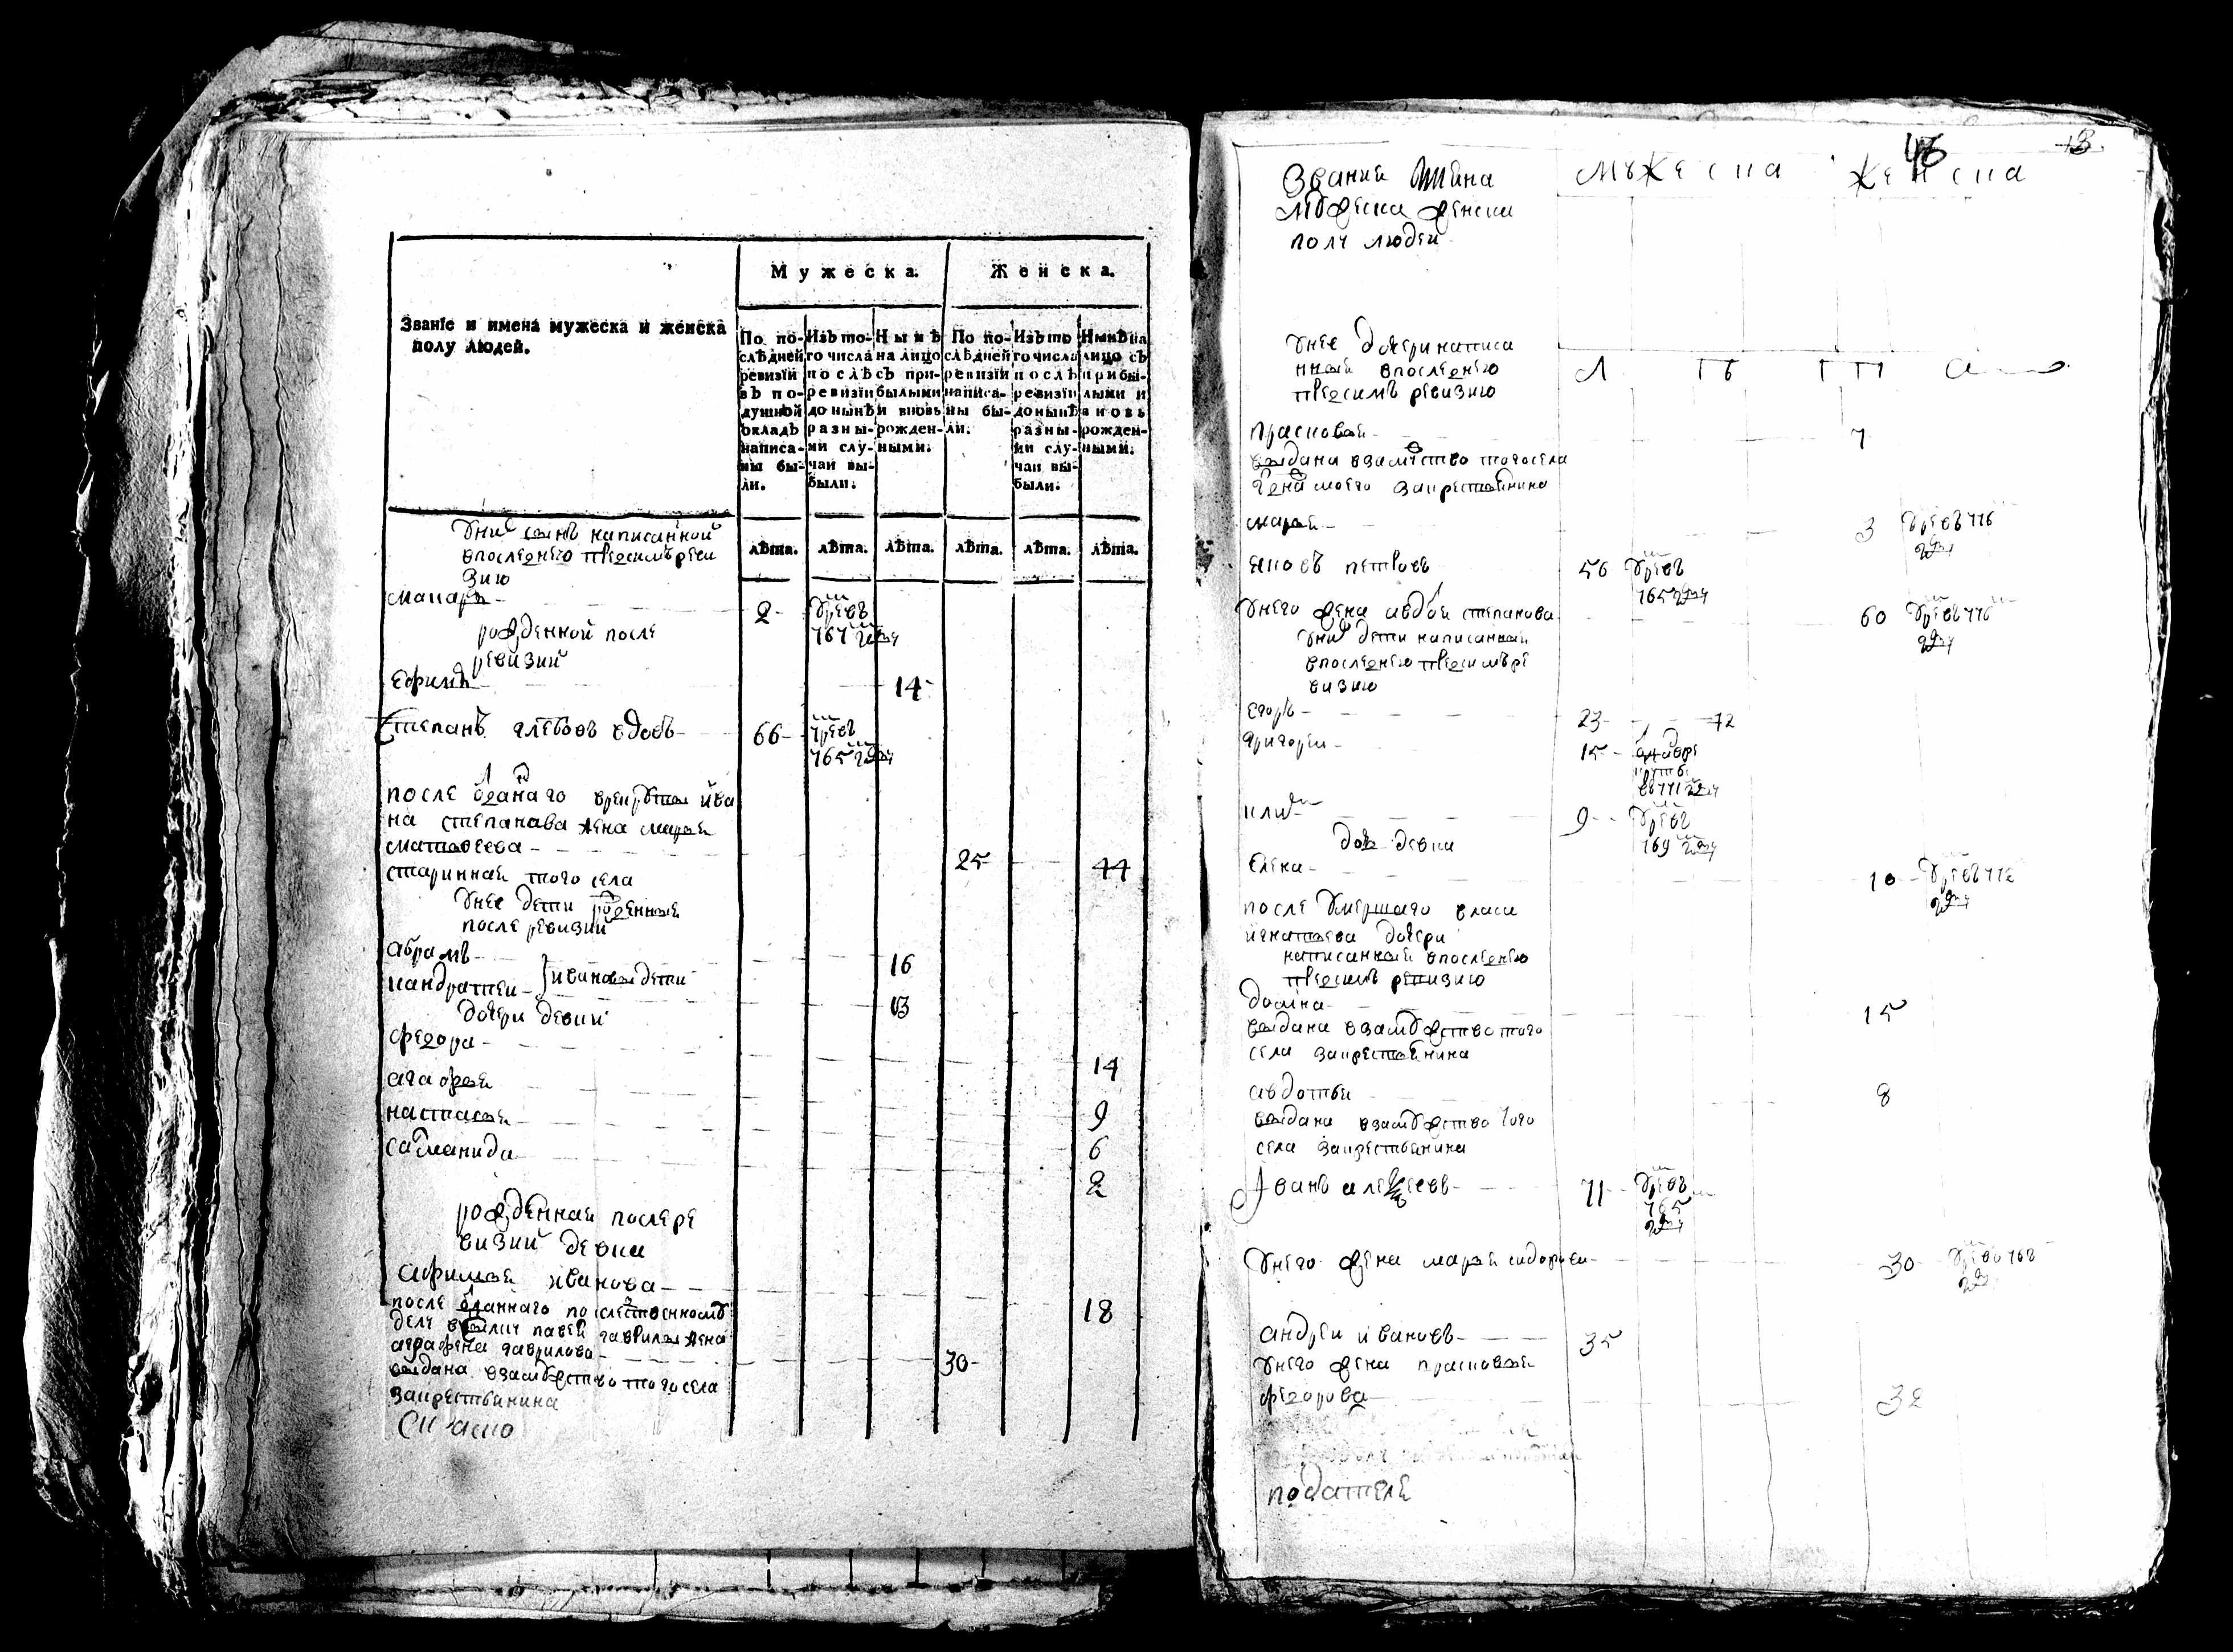 Званіе и имена мужеска и женска
полу людей.
Мужеска.
Женска.
По по-
слѣдней
ревизіи
въ по-
душной
окладъ
написа-
ны бы-
ли.
Изъ то-
го числа
послѣ
ревизіи
до нынѣ
разны-
ми слу-
чаи вы-
были.
Нынѣ
на лицо
съ при-
былыми
и вновь
рожден-
ными.
По по-
слѣдней
ревизіи
написа-
ны бы-
ли.
Изъ то
го числа
послѣ
ревизіи
до нынѣ
разны-
ми слу-
чаи вы-
были.
Нынѣ на
лицо съ
прибы-
лыми и
вновь
рожден-
ными.
лѣта. лѣта. лѣта. лѣта. лѣта. лѣта.
Уних сынъ написанной
впоследнею пред симъ реви
зию
макаръ 2 умре въ
767 году
рожденной после
ревизии
ефимъ 14
Степанъ глебовъ вдовъ 66 умре въ
765 году
после отданаго врекруты ива
на степанава жена марья
матвеева 25 44
старинная того села
Унее дети рожденные
после ревизии
абрамъ 16
кандратей ивановы дети 13
дочери девки
федора 14
агафья 9
настасья 6
саламанида 2
рожденная после ре
визии девка
афимья иванова 18
после
деле гаврилы жена
аграфена гаврилова 30
выдана взамужство того села
закрестьянина
46 13
Звание имена
мужеска женска
полу людей
мужеска женска
Унее дочери написа
нныя впоследнею
пред симъ ревизию
прасковья 7
выдана взамужство тогосела
закрестьянина
марья 3 умре въ 776
году
яковъ петровъ 56 умре въ
765 году
Унего жена авдотья степанова 60 умре въ 776
году
Уних дети написанныя
впоследнею пред симъ ре
визию
егоръ 23 42
григорей 15
въ 771 году
клим 9 умре въ
769 году
дочь девка
елена 10 умре въ 772
году
после Умершаго власа
игнатьева дочери
написанныя впоследнею
пред симъ ревизию
домна 15
выдана взамужство того
села закрестьянина
авдотья 8
выдана взамужство того
села закрестьянина
Иванъ алексеевъ 71 умре въ
765
году
Унего жена марья сидорова 30 умре въ 768
году
андрей ивановъ 35
Унего жена прасковья
федорова 32
подателе